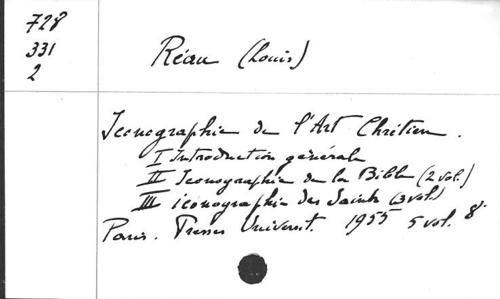 728
331
2
Réau (Louis)
Iconographie de l'Art Chrétien.
I Introduction générale
II Iconographie de la Bible (2 vol.)
III iconographie des Saints (3 vol.)
Paris. Presses Universit. 1955 5 vol. 8°